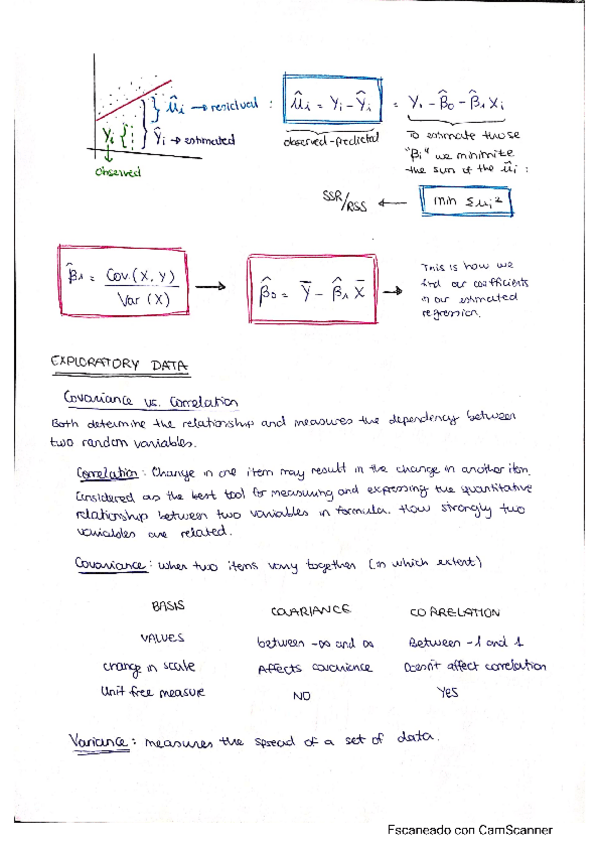 ûi → residual : ûi = Yi - Ŷi = Yi - β̂0 - β̂1 Xi
Yi Ŷi → estimated
observed
observed-predicted
To estimate those
"βi" we minimize
the sum of the ûi :
SSR/RSS ← min Σui²
β̂1 = Cov.(X, Y) / Var (X) → β̂0 = Y̅ - β̂1 X̅ →
This is how we
find our coefficients
in our estimated
regression.
EXPLORATORY DATA
Covariance vs. Correlation
Both determine the relationship and measures the dependency between
two random variables.
Correlation: Change in one item may result in the change in another item.
Considered as the best tool for measuring and expressing the quantitative
relationship between two variables in formula. How strongly two
variables are related.
Covariance: when two items vary together (in which extent)
BASIS COVARIANCE CORRELATION
VALUES between -∞ and ∞ Between -1 and 1
change in scale Affects covariance Doesn't affect correlation
Unit free measure NO YES
Variance: measures the spread of a set of data.
Escaneado con CamScanner